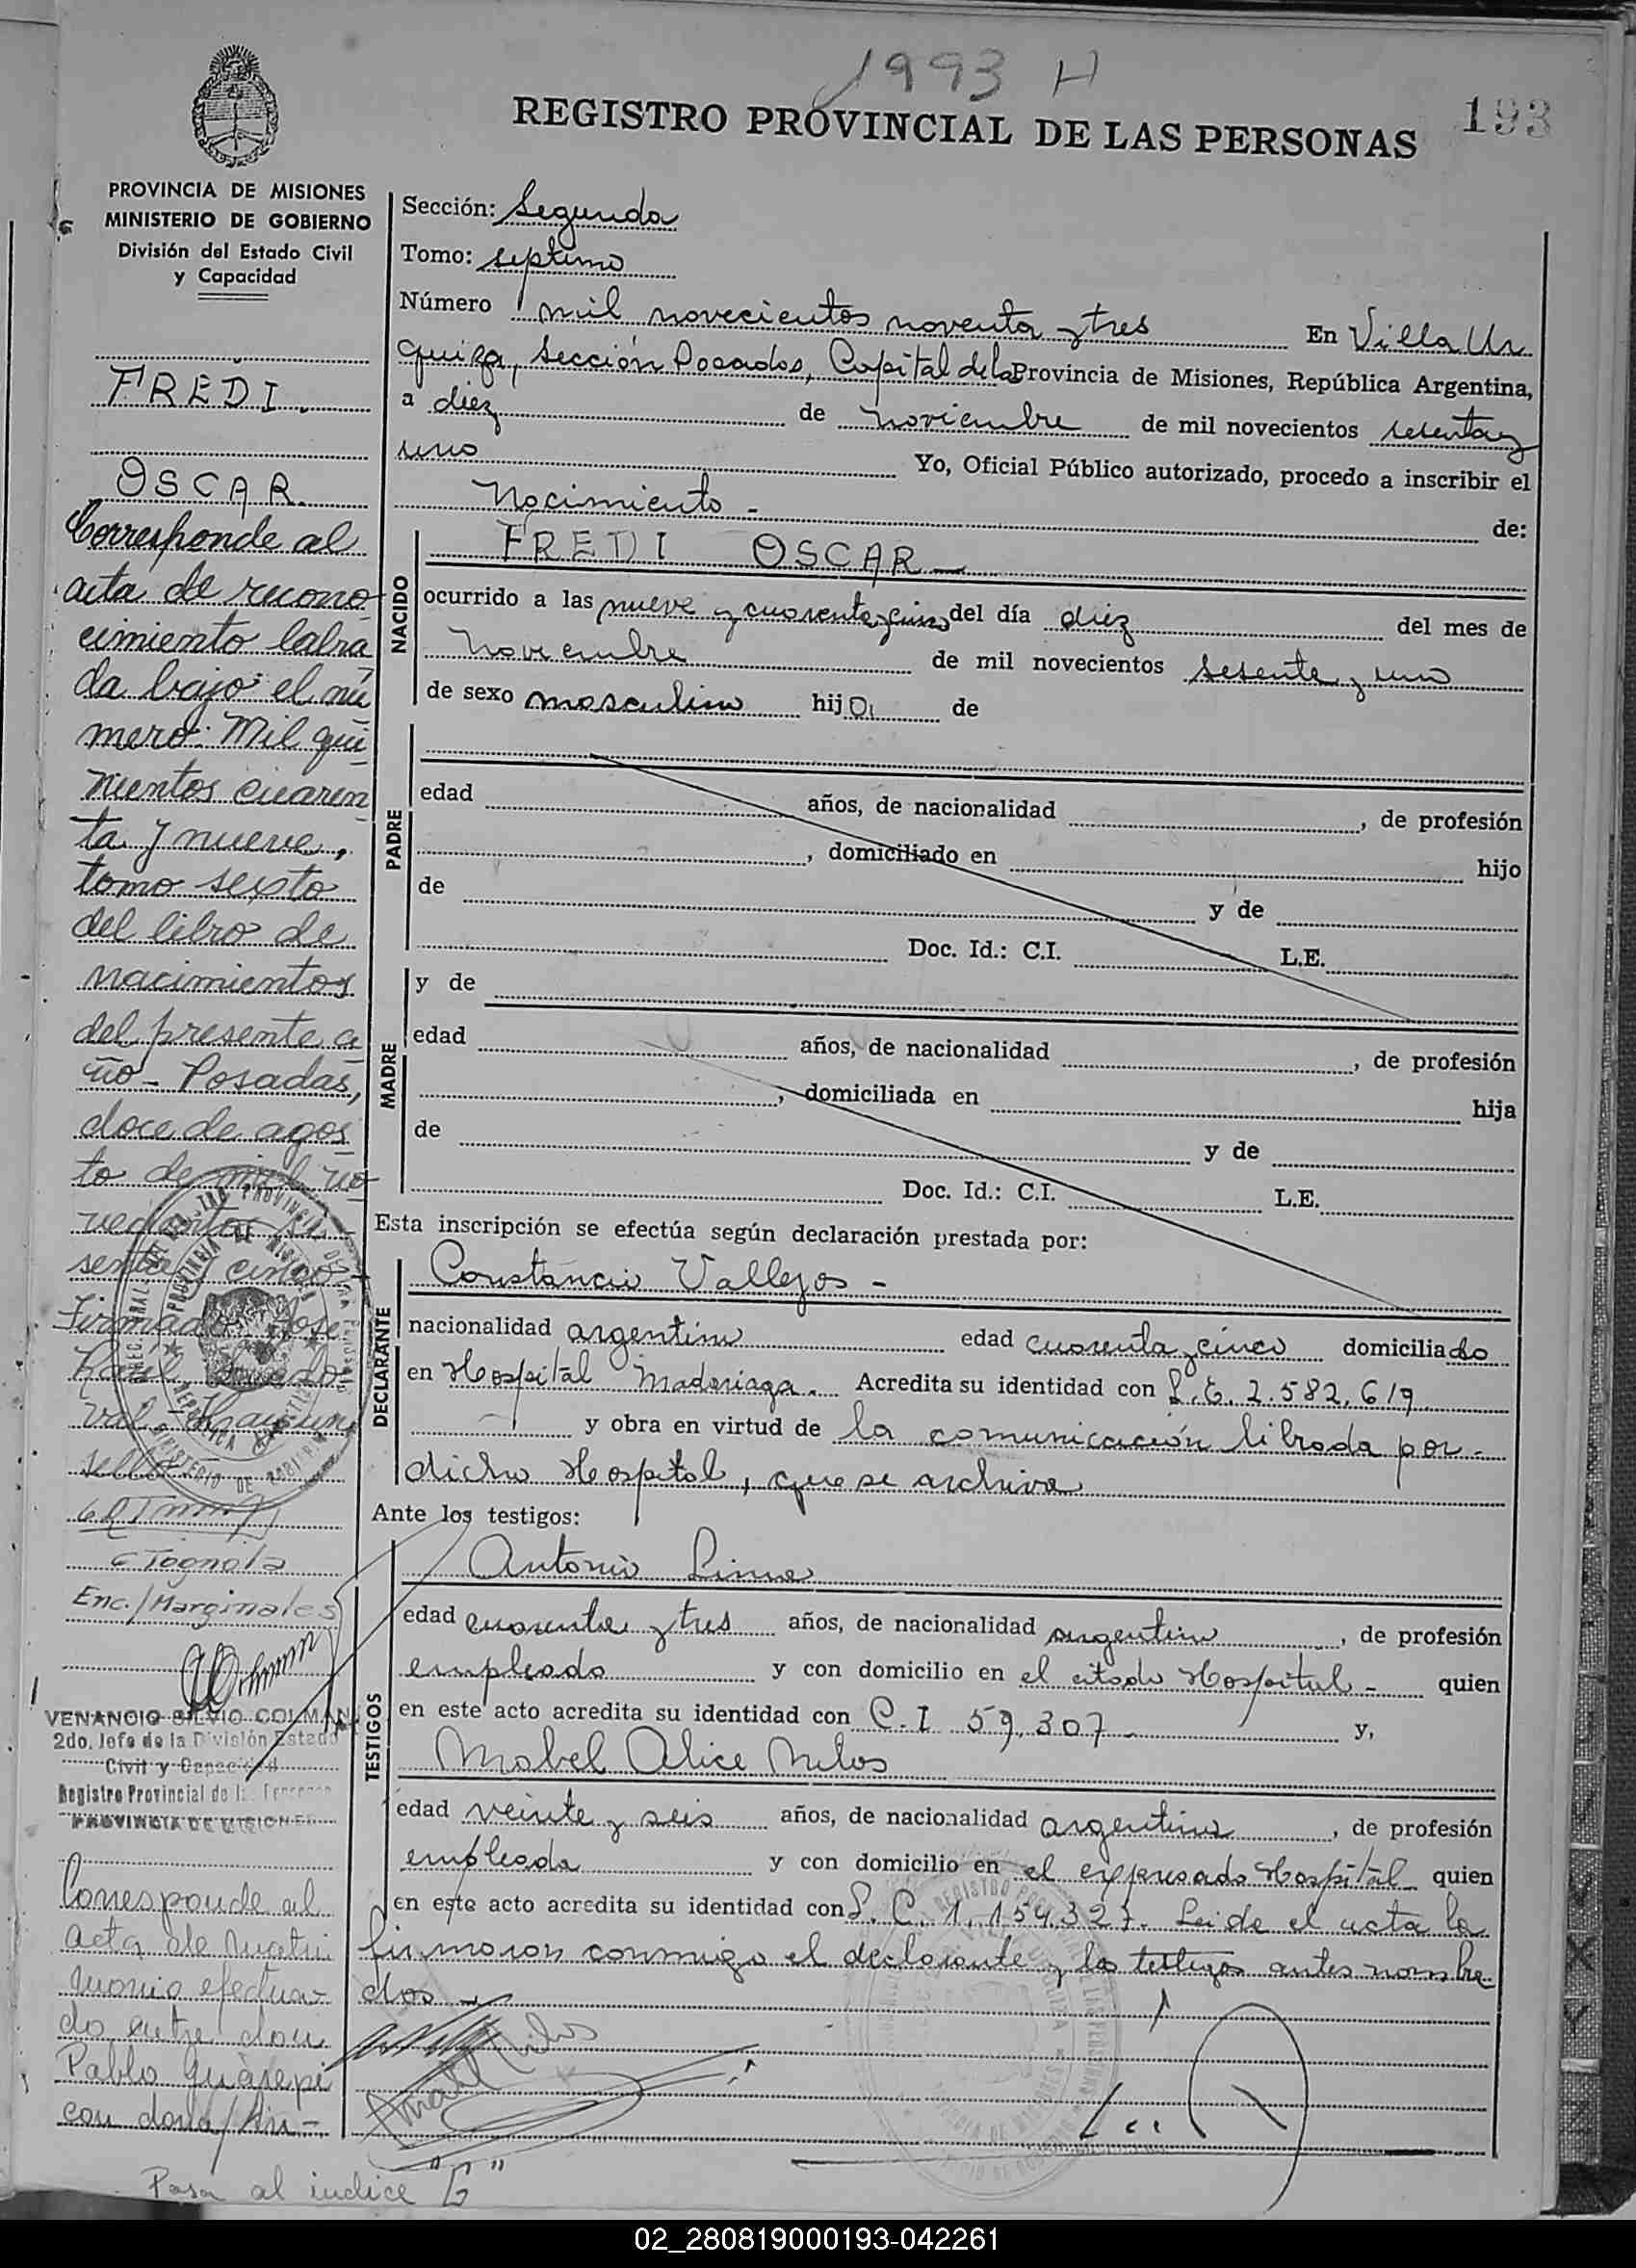 1993 H
REGISTRO PROVINCIAL DE LAS PERSONAS
193
PROVINCIA DE MISIONES
MINISTERIO DE GOBIERNO
División del Estado Civil
y Capacidad
FREDI
OSCAR.
Corresponde al
acta de recono
cimiento labra
da bajo el nú
mero: Mil qui
nientos cuaren
ta y nueve,
tomo sexto
del libro de
nacimientos
del presente a
ño - Posadas,
doce de agos
to de mil no
vecientos se
senta y cinco
Firmado: José
Raúl
sello
C Tognola
Enc./Marginales
VENANCIO SILVIO COLMAN
2do. Jefe de la División Estado
Civil y Capacidad
Registro Provincial de las Personas
PROVINCIA DE MISIONES
Corresponde al
acta de matri
monio efectua-
do entre don
Pablo Guarepi
con doña
Sección: Segunda
Tomo: septimo
Número mil novecientos noventa y tres En Villa Ur
quiza, Sección Posadas, Capital de la Provincia de Misiones, República Argentina,
a diez de noviembre de mil novecientos sesenta y
uno Yo, Oficial Público autorizado, procedo a inscribir el
Nacimiento - de:
NACIDO
FREDI OSCAR -
ocurrido a las nueve y cuarenta y cinco del día diez del mes de
Noviembre de mil novecientos sesenta y uno
de sexo masculino hijo de
PADRE
edad años, de nacionalidad , de profesión
, domiciliado en hijo
de y de
Doc. Id.: C.I. L.E.
MADRE
y de
edad años, de nacionalidad , de profesión
, domiciliada en hija
de y de
Doc. Id.: C.I. L.E.
Esta inscripción se efectúa según declaración prestada por:
DECLARANTE
Constancio Vallejos -
nacionalidad argentino edad cuarenta y cinco domiciliado
en Hospital Madariaga. Acredita su identidad con L.E. 2.582.619
y obra en virtud de la comunicación librada por
dicho Hospital, que se archiva
Ante los testigos:
TESTIGOS
Antonio Lima
edad cuarenta y tres años, de nacionalidad argentino , de profesión
empleado y con domicilio en el citado Hospital - quien
en este acto acredita su identidad con C.I 59.307 y,
Mabel Alice
edad veinte y seis años, de nacionalidad argentina , de profesión
empleada y con domicilio en el expresado Hospital quien
en este acto acredita su identidad con L.C. 1.154.327. Leida el acta la
firmaron conmigo el declarante y los testigos antes nombra
dos -
Pasa al indice "G"
02_280819000193-042261